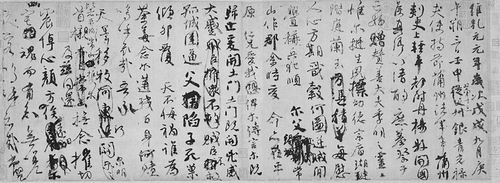 維乾元元年歲次戊戌九月庚
午朔三日壬申第十三叔銀青光祿
夫使持節蒲州諸軍事蒲州
刺史上輕車都尉丹楊縣開國
侯真卿以清酌庶羞祭于
亡姪贈贊善大夫季明之靈曰
惟爾挺生夙標幼德宗廟瑚璉
階庭蘭玉每慰
人心方期戩穀何圖逆賊閒
釁稱兵犯順
爾父竭誠常
山作郡余時受命亦在平
原仁兄愛我俾爾傳言爾既
歸止爰開土門土門既開凶威
大蹙賊臣不救
孤城圍逼父陷子死巢
傾卵覆天不悔禍誰為
荼毒念爾遘殘百身何贖
嗚呼哀哉吾承
天澤移牧河關泉明
首櫬及茲同還撫念摧切
震悼心顏方俟
魂而有知無嗟